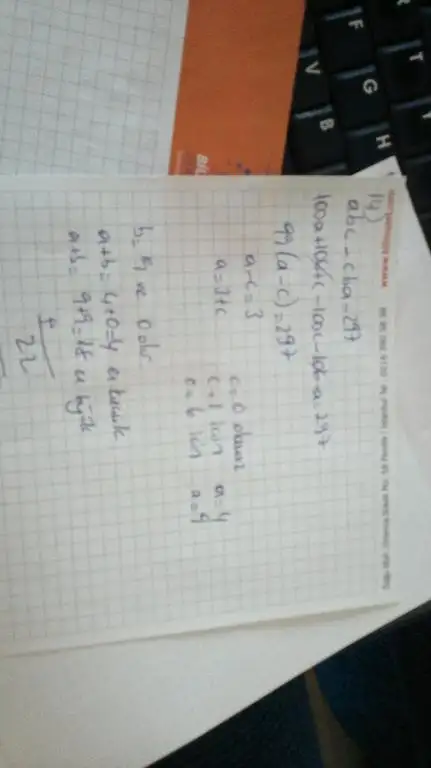 14)
abc - cba = 297
100a + 10b + c - 100c - 10b - a = 297
99(a-c) = 297
a-c = 3
a = 3+c
c=0 olamaz
c=1 için a=4
c=6 için a=9
b= 9 ve 0 olur
a+b = 4+0=4 en küçük
a+b = 9+9=18 en büyük
+
22
F
T
V
G
B
H